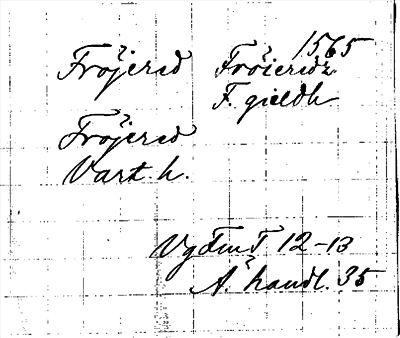 Fröjered Fröieredz 1565
F. gieldh
Fröjered
Vart. h.
Vg Fmt 12-13
Ä. handl. 35